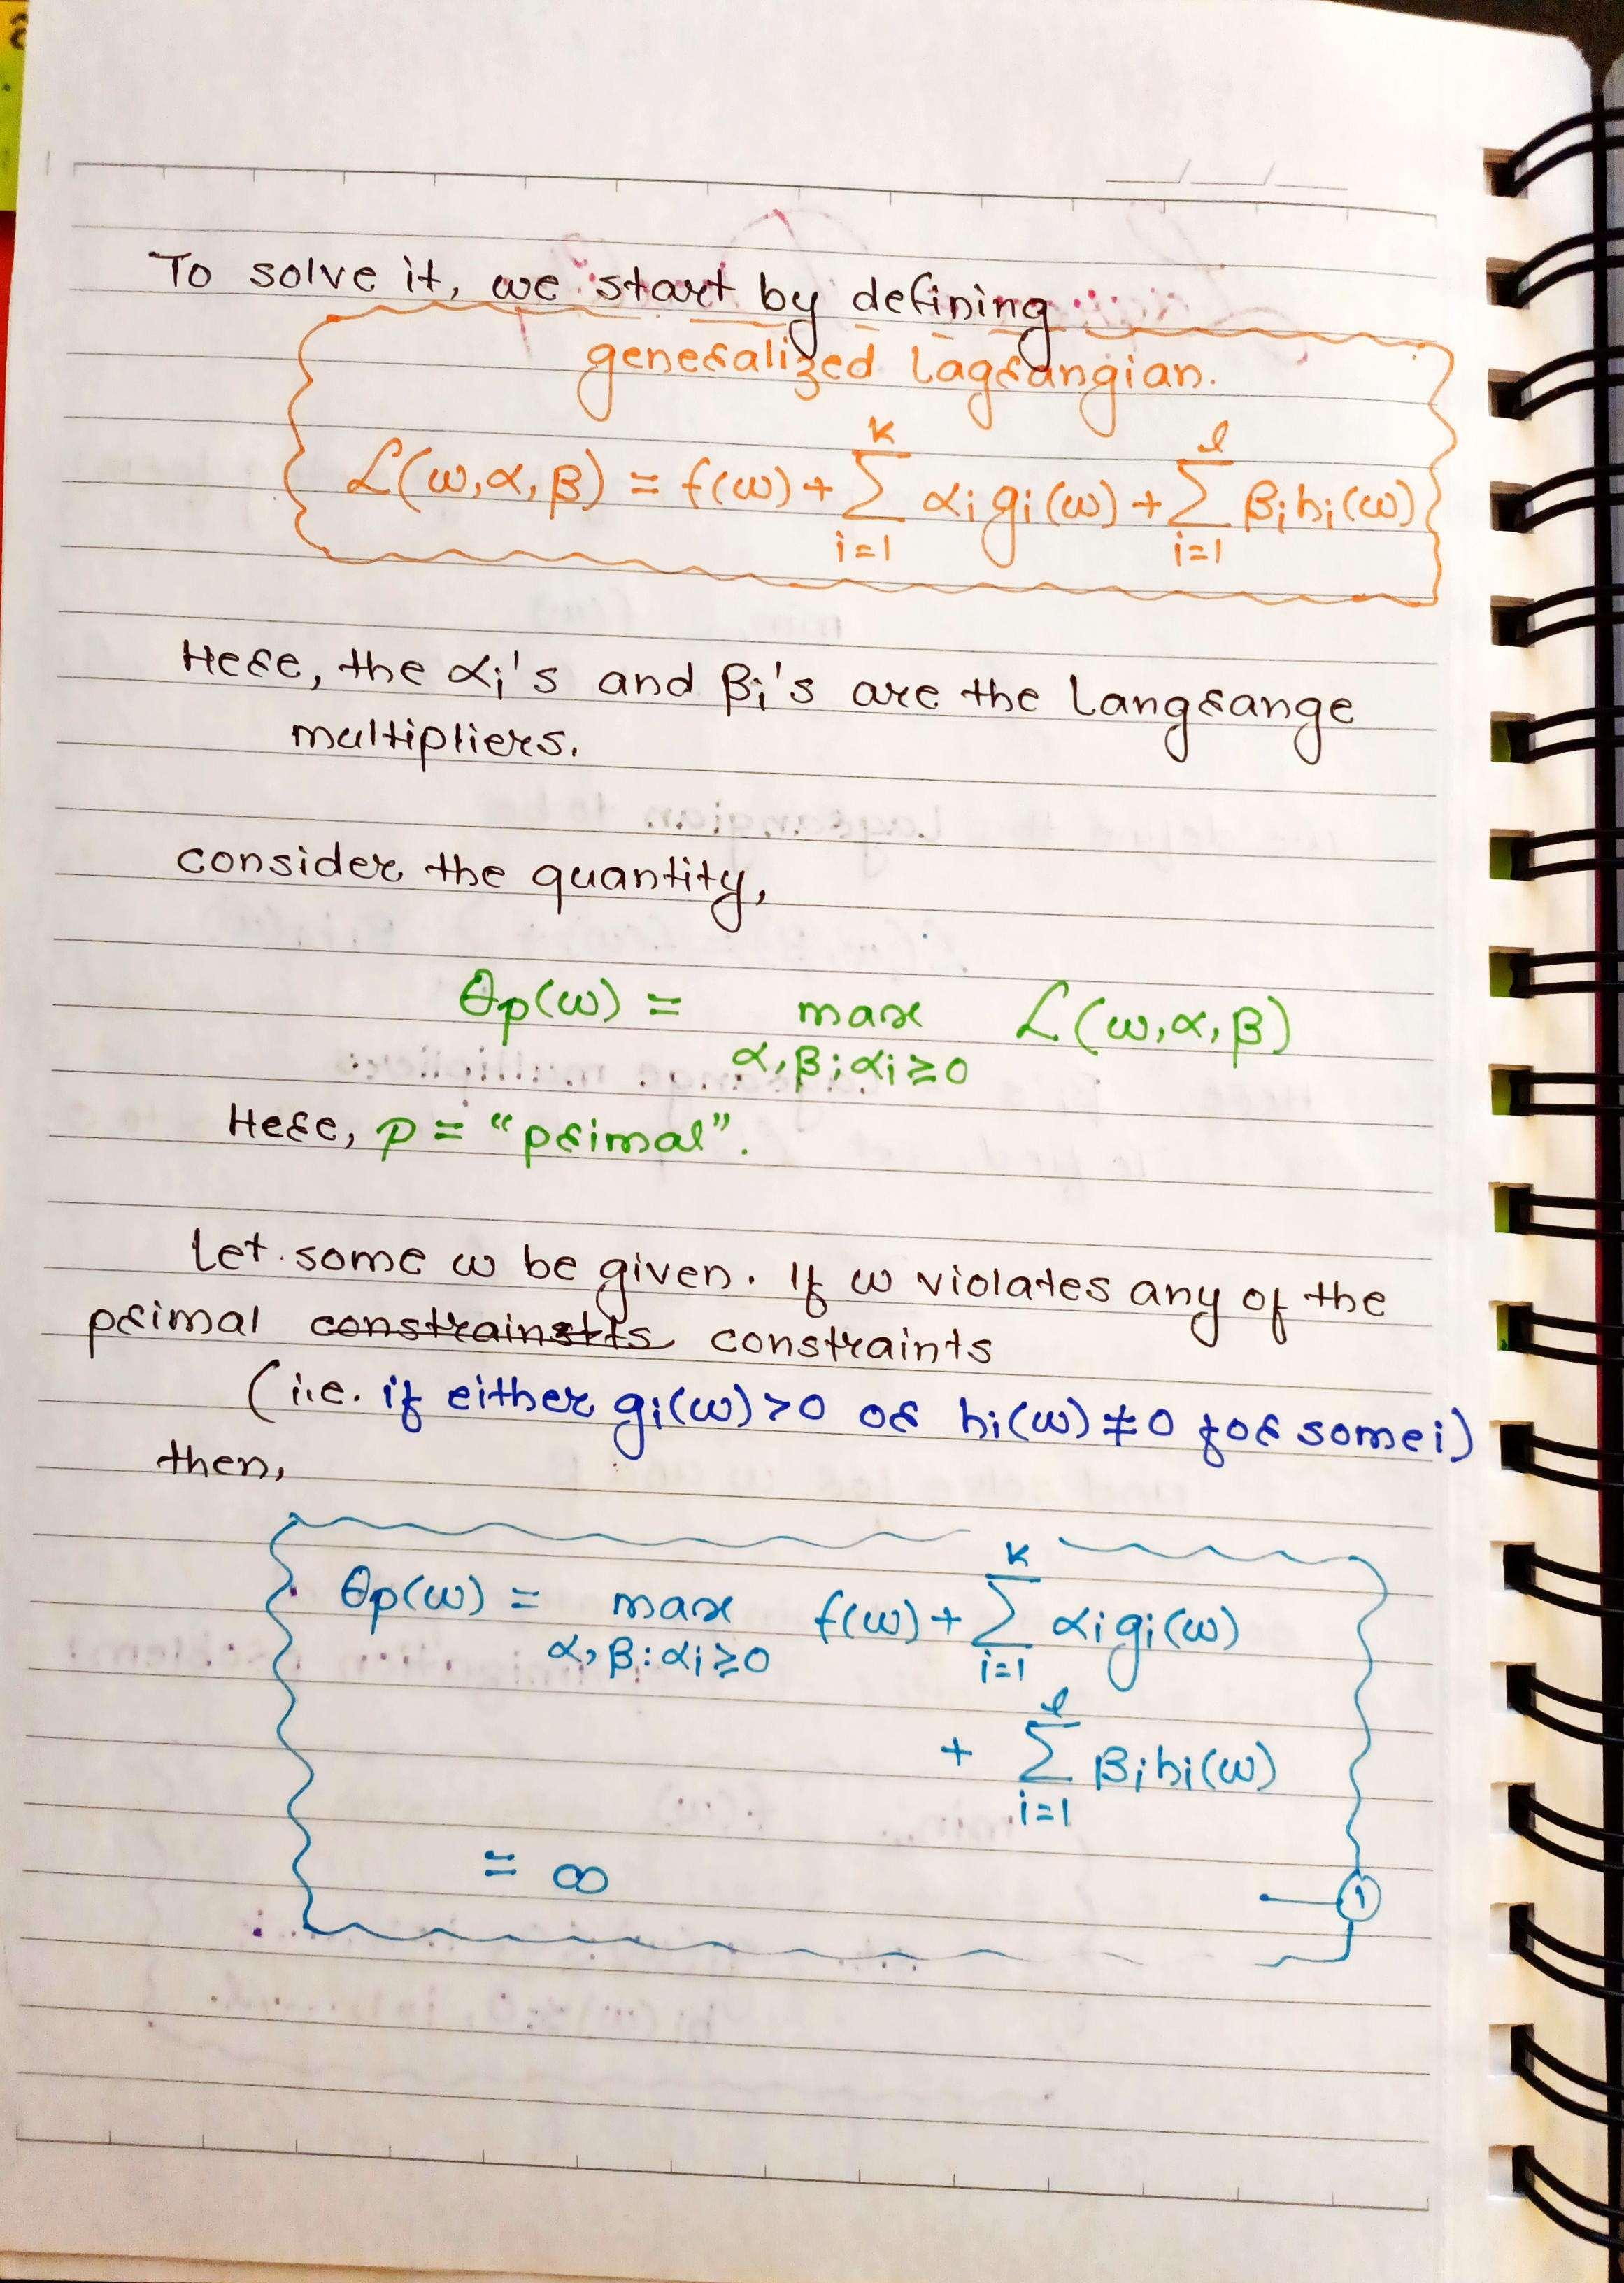 To solve it, we start by defining
generalized Lagrangian.
ℒ(ω,α,β) = f(ω) + ∑_{i=1}^{k} αᵢgᵢ(ω) + ∑_{i=1}^{l} βᵢhᵢ(ω)
Here, the αᵢ's and βᵢ's are the Langrange
multipliers.
consider the quantity,
θp(ω) = max_{α,β;αᵢ≥0} ℒ(ω,α,β)
Here, p = "primal".
Let some ω be given. If ω violates any of the
primal constrainstts constraints
(i.e. if either gᵢ(ω)>0 or hᵢ(ω)≠0 for some i)
then,
θp(ω) = max_{α,β:αᵢ≥0} f(ω) + ∑_{i=1}^{k} αᵢgᵢ(ω)
+ ∑_{i=1}^{l} βᵢhᵢ(ω)
= ∞ —①